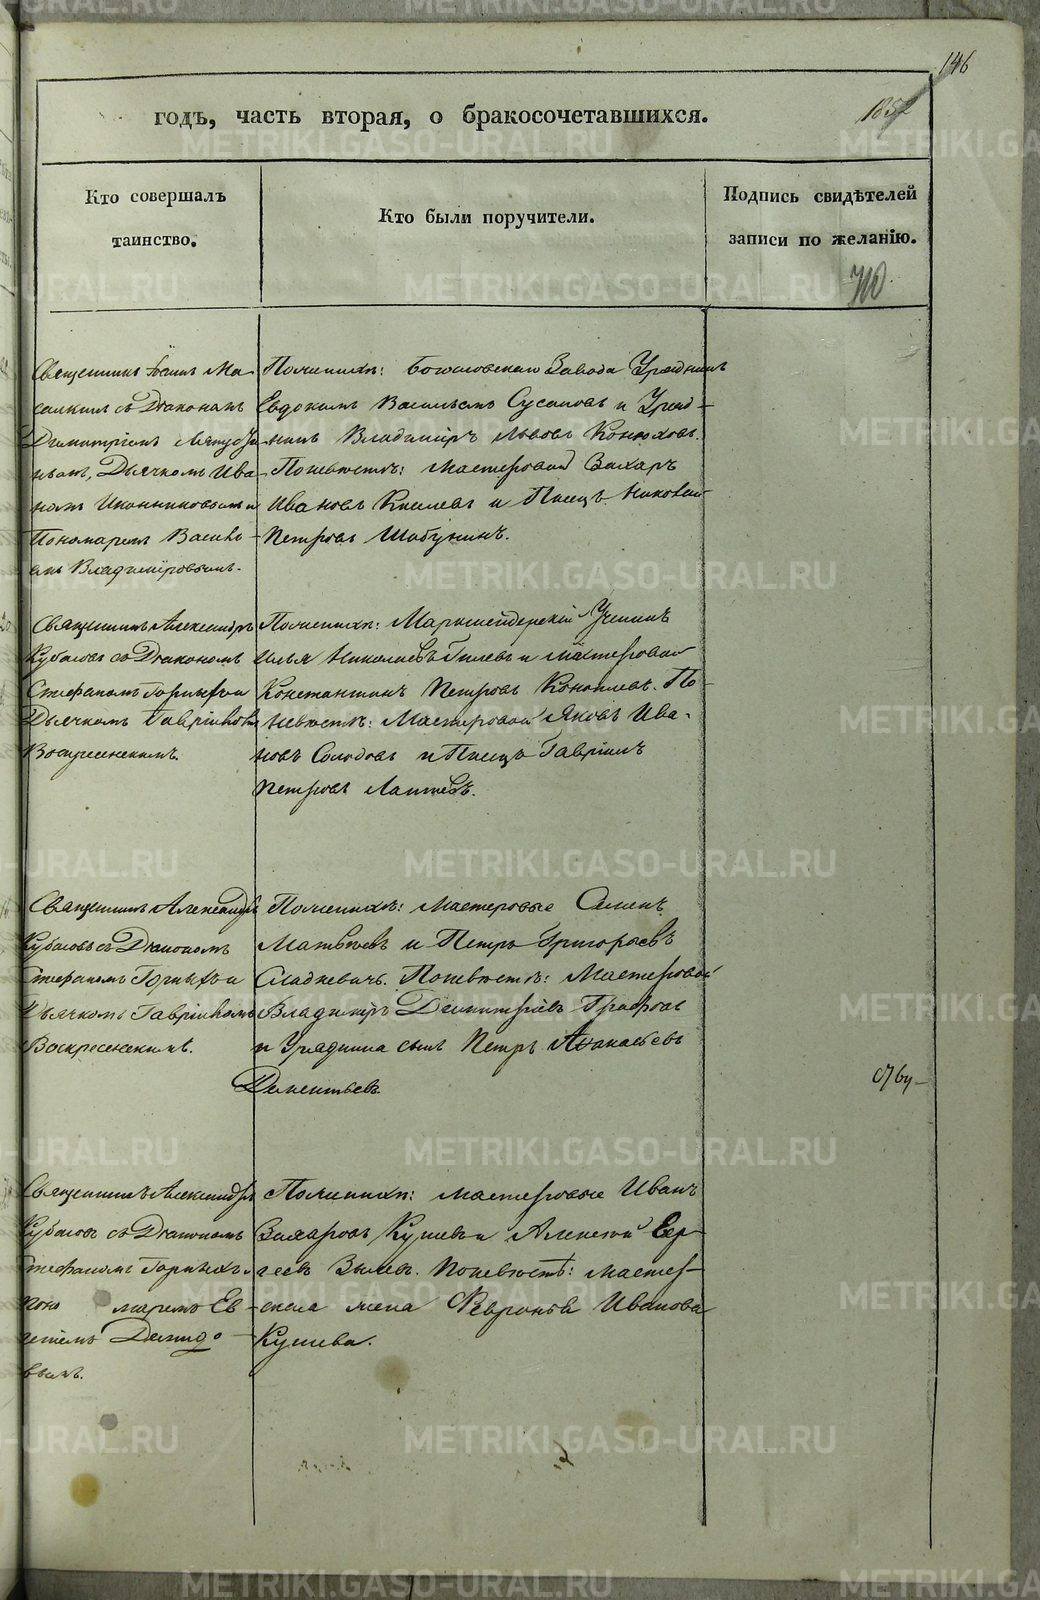 146
годъ, часть вторая, о бракосочетавшихся.
185
Кто совершалъ
таинство.
Кто были поручители.
Подпись свидѣтелей
записи по желанію.
Священникъ Іоаннъ Ма-
съ Діакономъ
Димитріемъ
Дьячкомъ Ива-
номъ Иконниковымъ и
Пономаремъ Василь-
емъ Владиміровымъ.
По женихѣ: Богословскаго Завода Урядникъ
Евдокимъ Васильевъ Сусловъ и Уряд-
никъ Владиміръ Львовъ Конюховъ.
По невѣстѣ: Мастеровой Захаръ
Ивановъ Киселевъ и Писецъ Николай
Петровъ Шабунинъ.
Священникъ Александръ
Кубасовъ съ Діакономъ
Стефаномъ Горныхъ и
Дьячкомъ Гавріиломъ
Воскресенскимъ.
По женихѣ: Маркшейдерскій Ученикъ
Илья Николаевъ Гилевъ и Мастеровой
Константинъ Петровъ Коноплевъ. По
невѣстѣ: Мастеровой Яковъ Ива-
новъ Солодовъ и Писецъ Гавріилъ
Петровъ Лаптевъ.
Священникъ Александръ
Кубасовъ съ Діакономъ
Стефаномъ Горныхъ и
Дьячкомъ Гавріиломъ
Воскресенскимъ.
По женихѣ: Мастеровые Семенъ
Матвѣевъ и Петръ Григорьевъ
Сладкевичъ. По невѣстѣ: Мастеровой
Владиміръ Димитріевъ
и Урядника сынъ Петръ Аѳанасьевъ
Дементьевъ.
Священникъ Александръ
Кубасовъ съ Діакономъ
Стефаномъ Горныхъ и
поно маремъ Ев-
геніемъ Демидо-
вымъ.
По женихѣ: Мастеровые Иванъ
Захаровъ Кушевъ и Алексѣй Сер-
геевъ Зыковъ. По невѣстѣ: Мастер-
скаго жена Февронія Иванова
Кушева.
METRIKI.GASO-URAL.RU